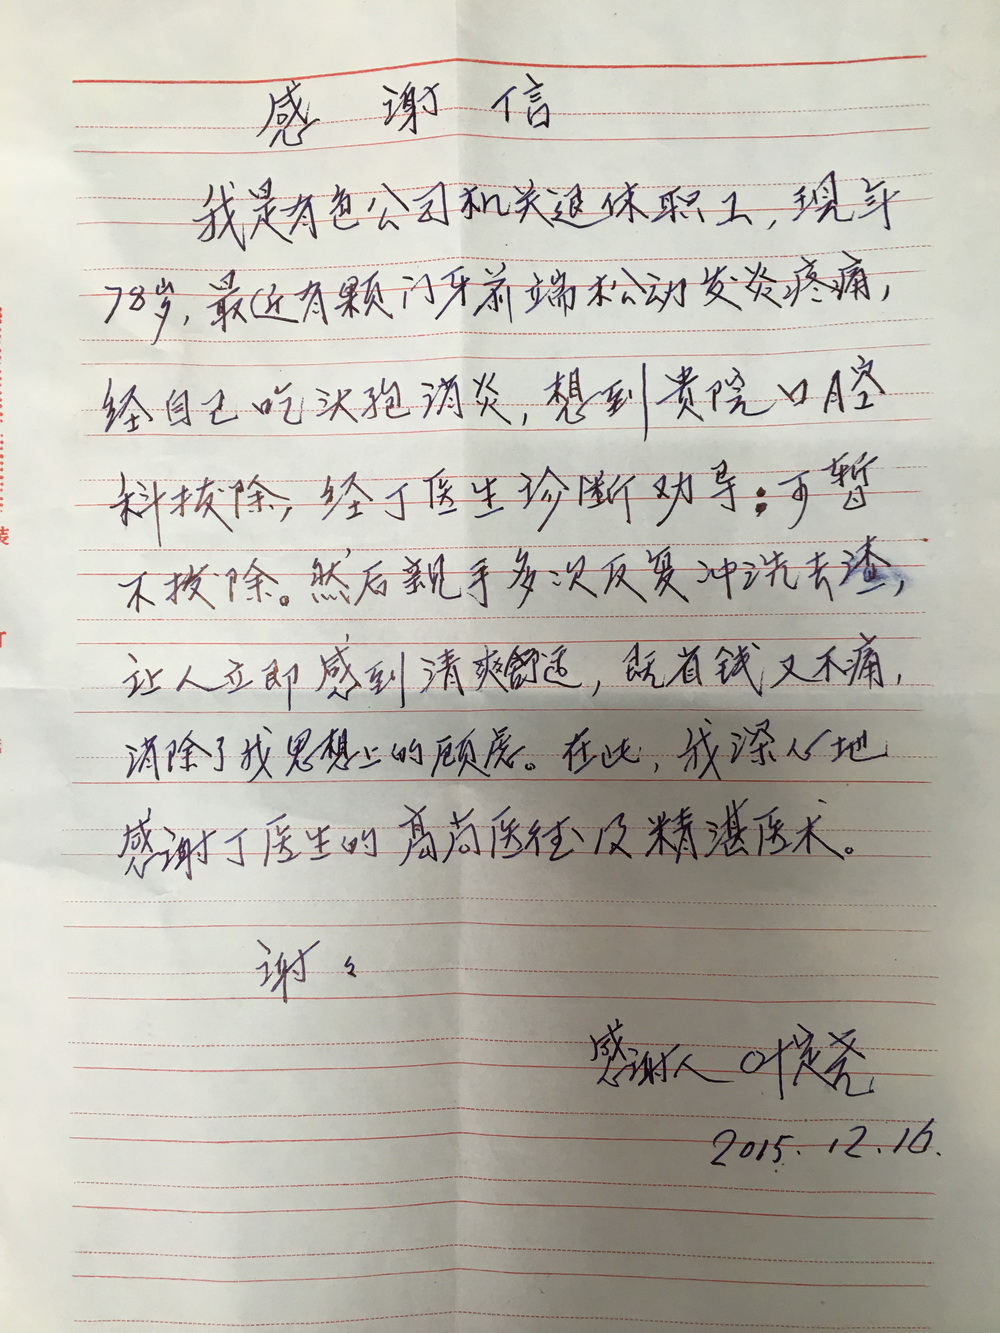 感谢信
我是有色公司机关退休职工,现年
78岁,最近有颗门牙前端松动发炎疼痛,
经自己吃头孢消炎,想到贵院口腔
科拔除,经丁医生诊断劝导:可暂
不拔除。然后亲手多次反复冲洗去渣,
让人立即感到清爽舒适,既省钱又不痛,
消除了我思想上的顾虑。在此,我深心地
感谢丁医生的高尚医德及精湛医术。
谢々
感谢人 叶定尧
2015.12.16.
装
订